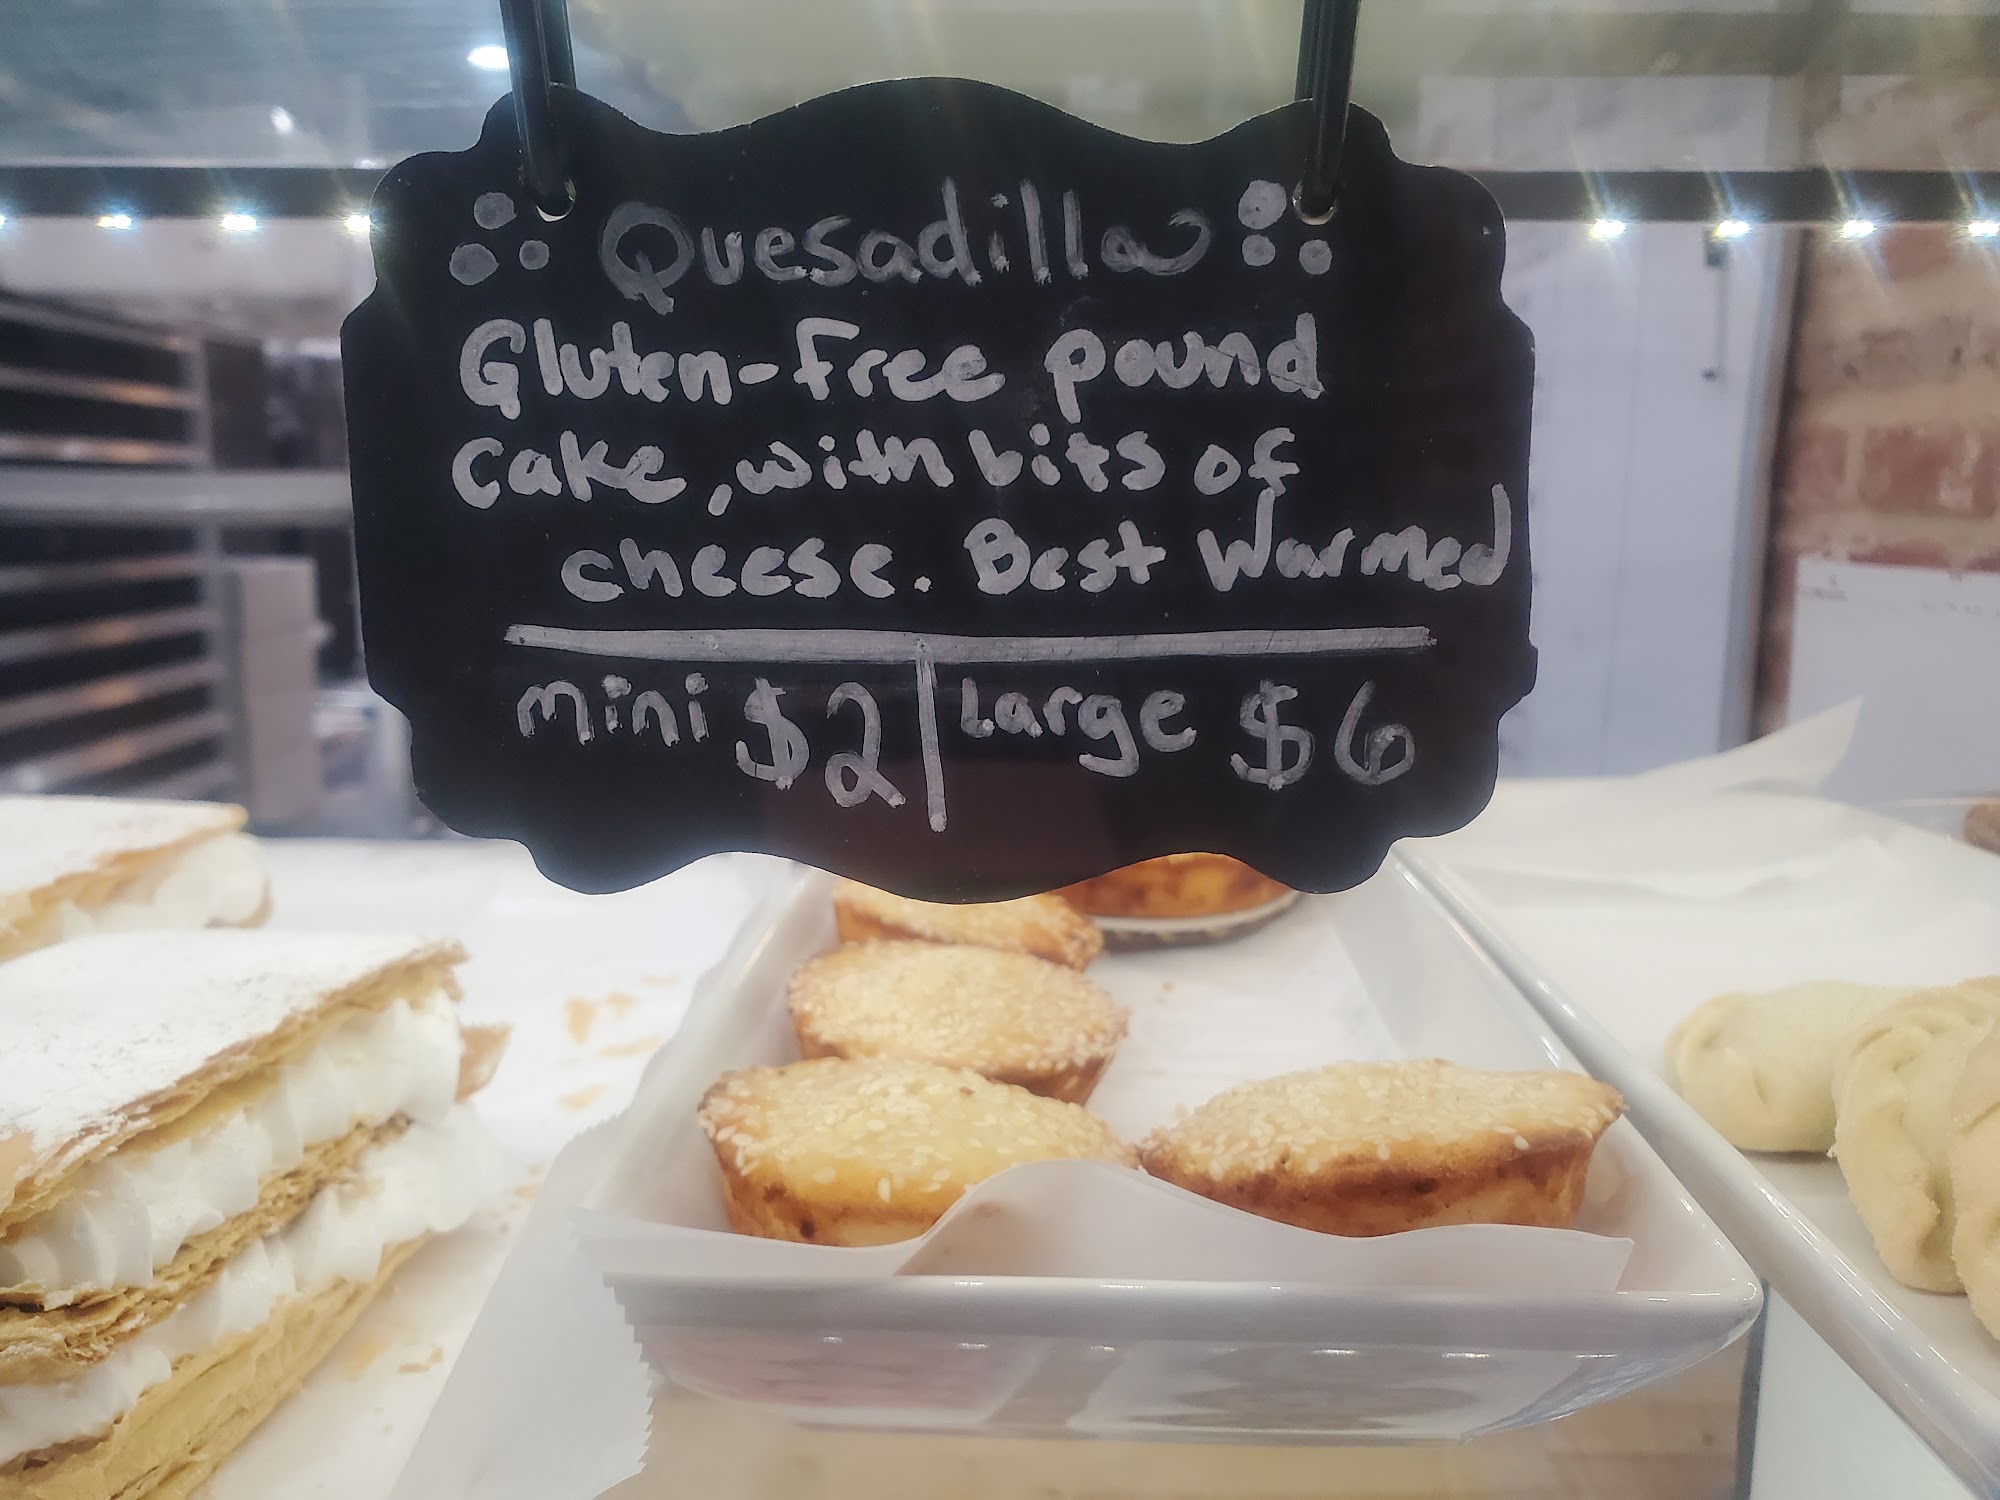 Quesadilla
Gluten-Free pound
cake, with bits of
cheese. Best Warmed
mini $2 | Large $6